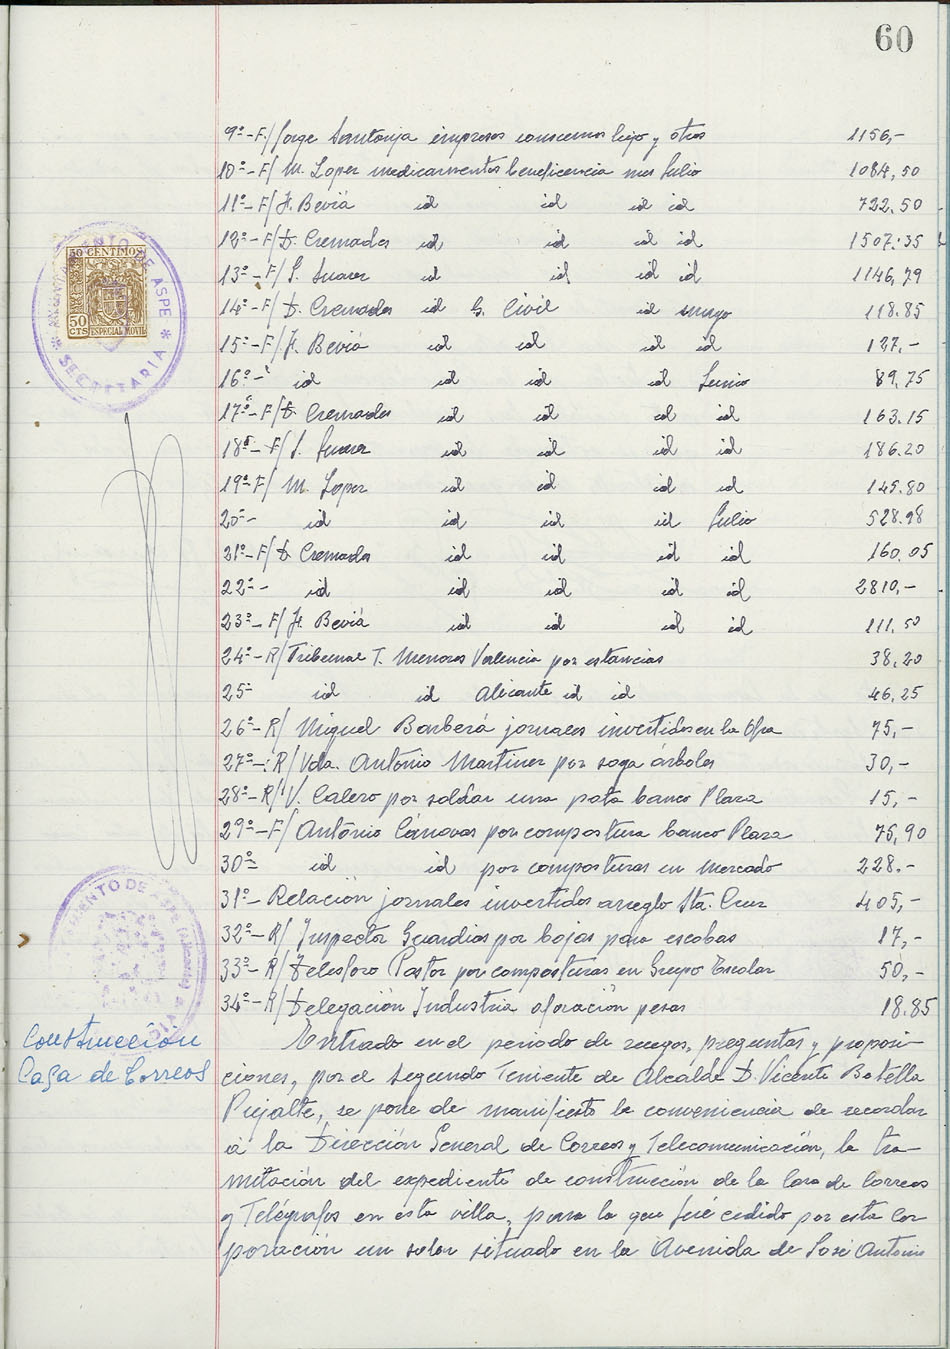 60
9º-F/Jorge Santonja impresos consumos lujo y otros 1156,-
10º-F/ M. Lopez medicamentos beneficencia mes Julio 1084,50
11º-F/ Beviá id id id id 722.50
12º-F/D. Cremades id id id id 1507.35
13º-F/ S. Suarez id id id id 1146,79
14º-F/ D. Cremades id G. Civil id mayo 118.85
15º-F/ Beviá id id id id 127.-
16º- id id id id Junio 89,75
17º-F/D. Cremades id id id id 163.15
18º-F/ S. Suarez id id id id 186.20
19º-F/ M. Lopez id id id id 145.80
20º- id id id id Julio 528.98
21º-F/ D. Cremades id id id id 160.05
22º- id id id id id 2810,-
23º-F/ Beviá id id id id 111.50
24º-R/Tribunal T. Menores Valencia por estancias 38,20
25º id id Alicante id id 46.25
26º-R/ Miguel Barberá jornales invertidos en la 75,-
27º-R/ Vda. Antonio Martinez por soga árboles 30,-
28º-R/ V. Calero por soldar una pata banco Plaza 15,-
29º-F/ Antonio Cánovas por compostura banco Plaza 75,90
30º id id por composturas en mercado 228.-
31º- Relación jornales invertidos arreglo Sta. Cruz 405,-
32º-R/ Inspector Guardias por bojas para escobas 17,-
33º-R/ Telesforo Pastor por composturas en Grupo Escolar 50,-
34º-R/ Delegación Industria aforación pesas 18.85
Construcción
Casa de Correos
Entrado en el periodo de ruegos, preguntas y proposi-
ciones, por el segundo Teniente de Alcalde D. Vicente Botella
Pujalte, se pone de manifiesto la conveniencia de recordar
a la Dirección General de Correos y Telecomunicación, la tra-
mitación del expediente de construcción de la Casa de Correos
y Telégrafos en esta villa, para lo que fué cedido por esta Cor
poración un solar situado en la Avenida de José Antonio
50 CENTIMOS
50
CTS ESPECIAL MOVIL
AYUNTAMIENTO DE ASPE * SECRETARIA *